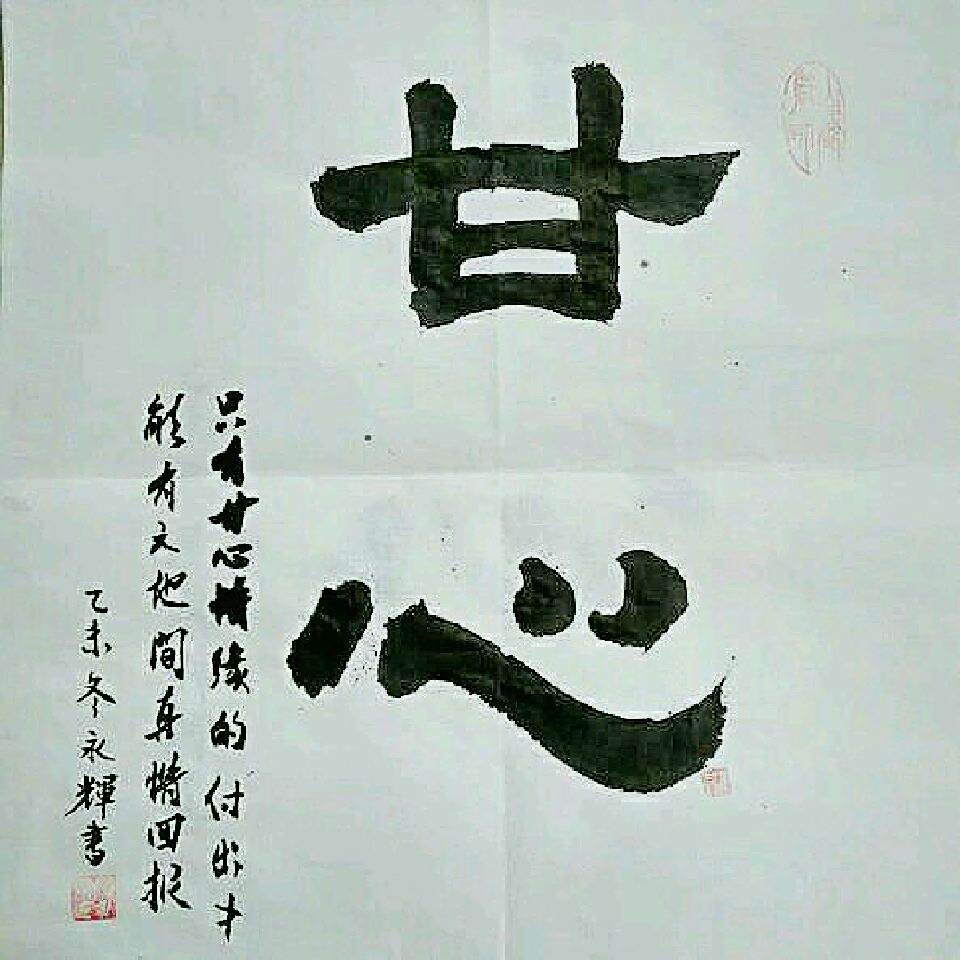 甘心
只有甘心情缘的付出才
能有天地間真情回报
乙未冬永輝書